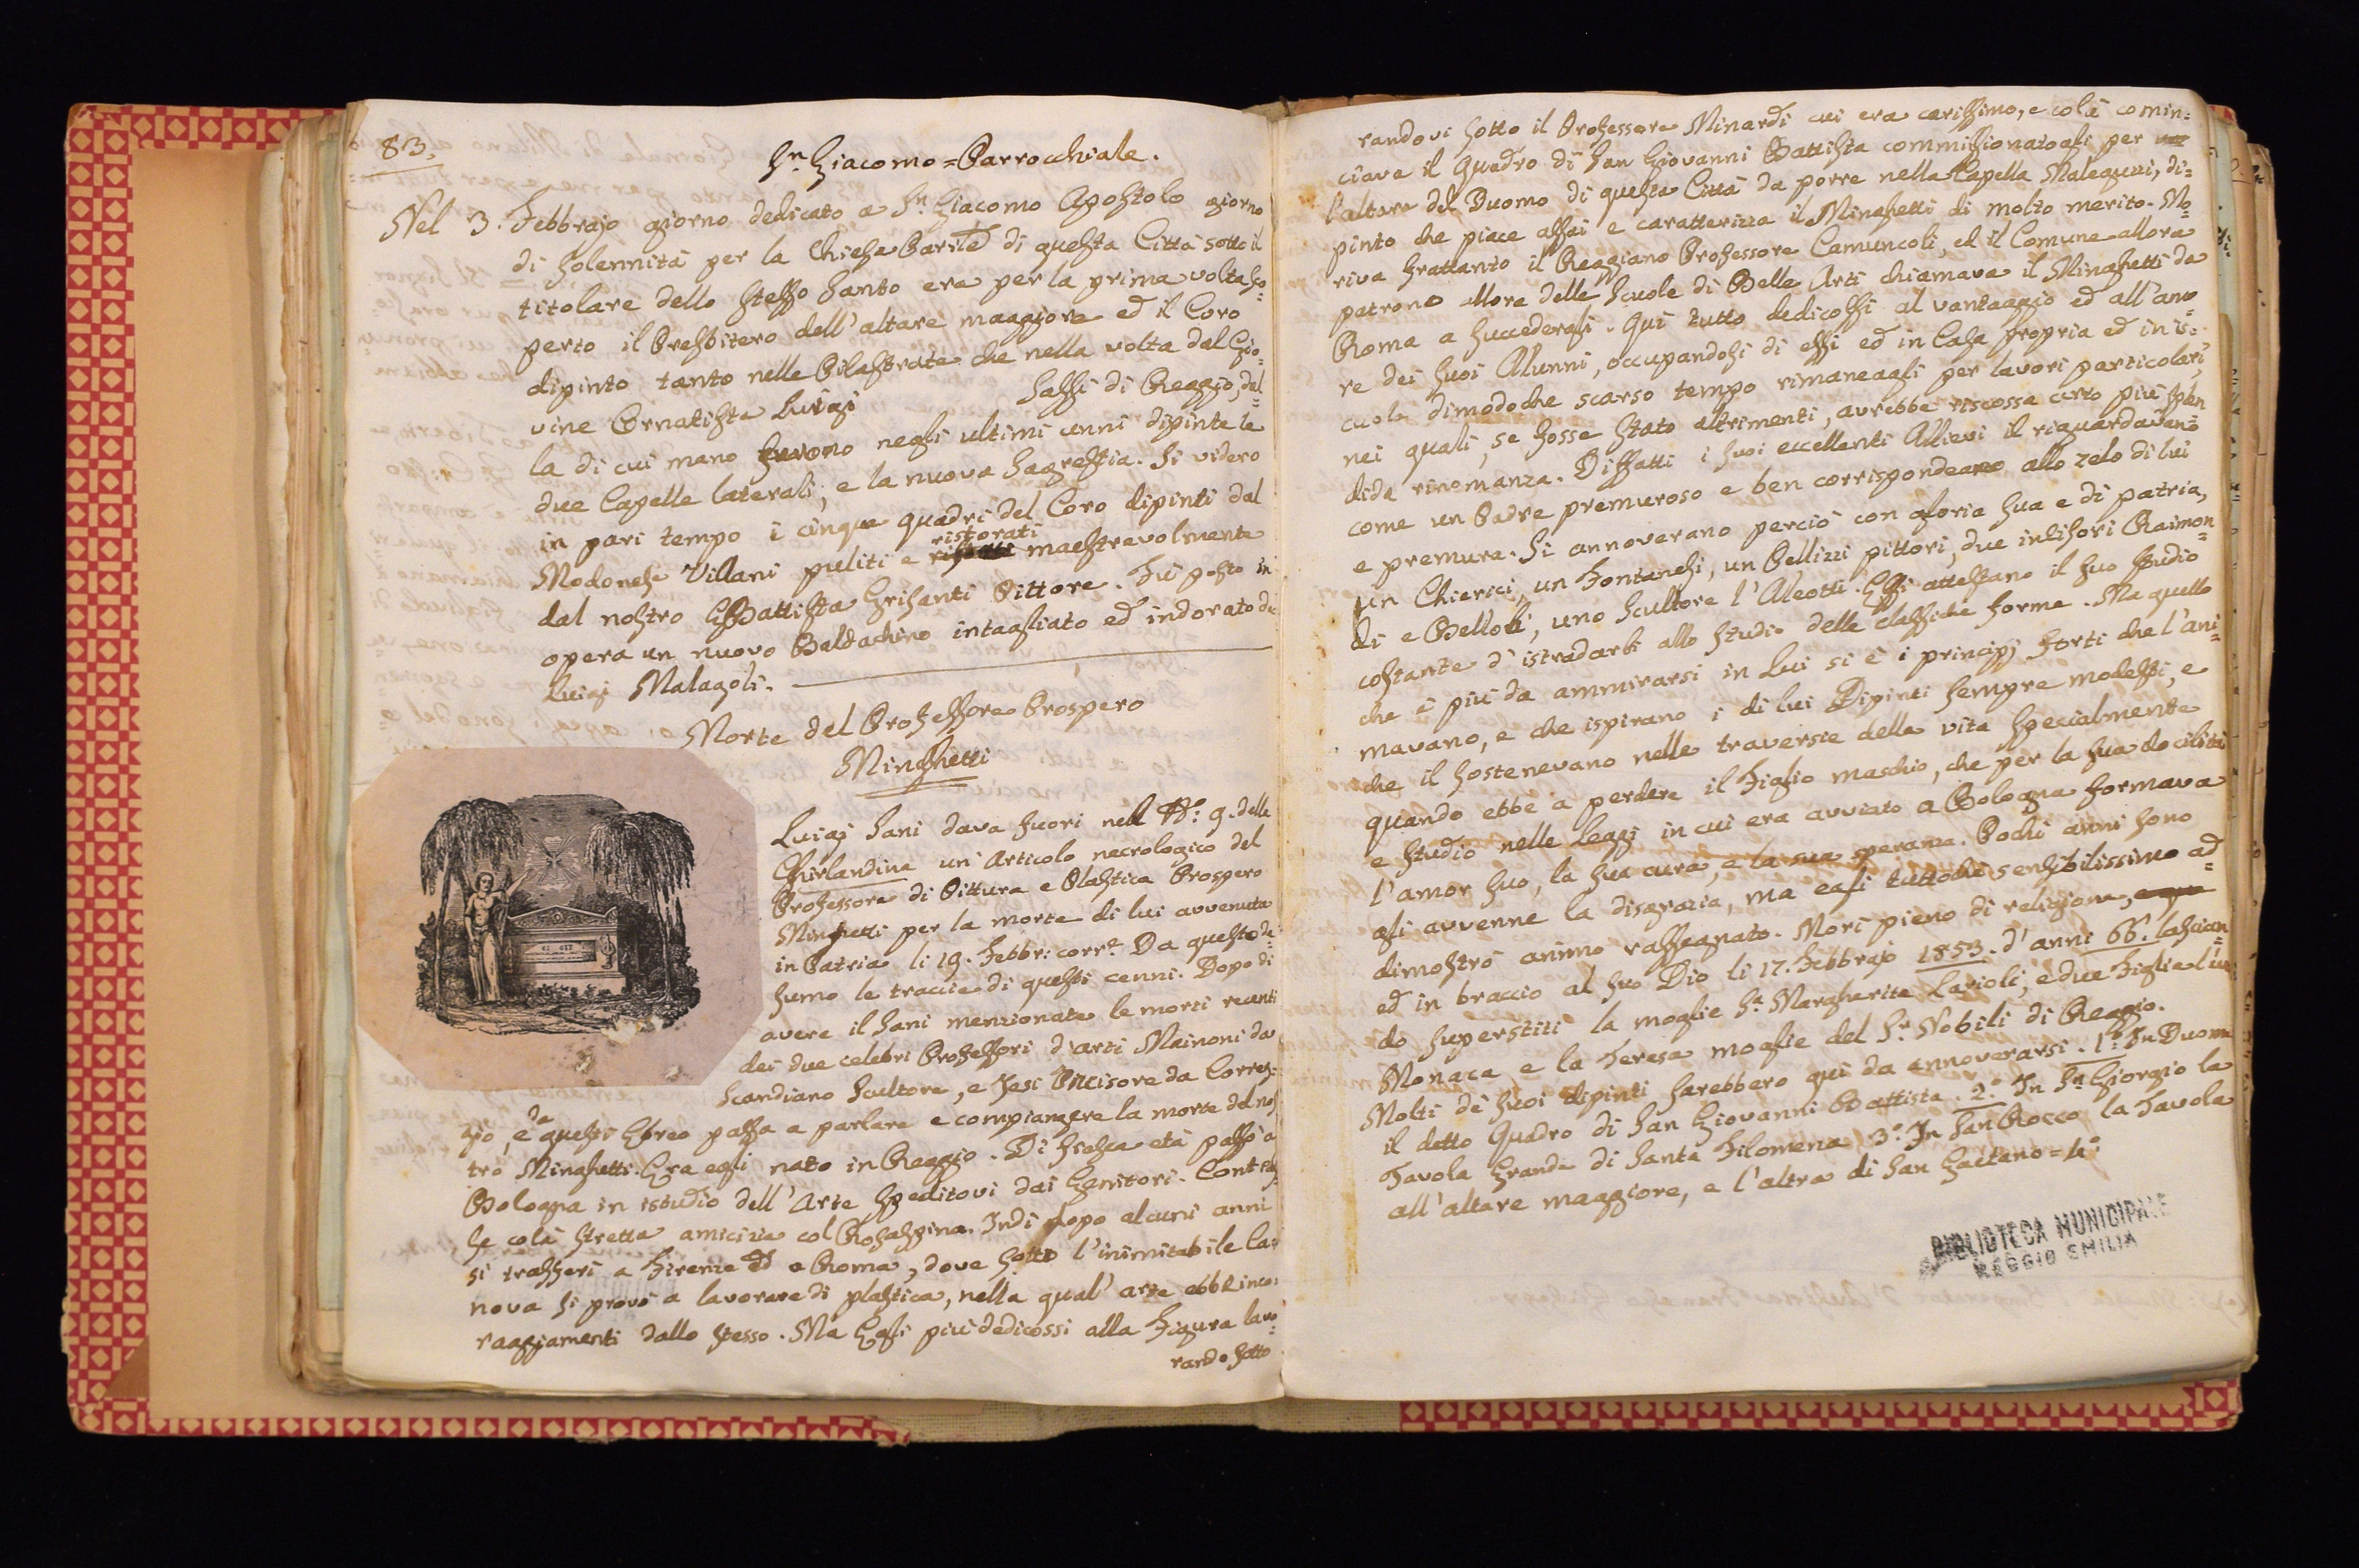 83.
Sn. Giacomo = Parrocchiale.
Nel 3. Febbrajo giorno dedicato a Sn. Giacomo Apostolo giorno
di solennità per la Chiesa Parrle di questa Città sotto il
titolare dello stesso Santo era per la prima volta sco=
perto il Presbitero dell'altare maggiore ed il Coro
dipinto tanto nelle Pilastrate che nella volta dal Gio=
vine Ornatista Luigi Sassi di Reggio, dal=
la di cui mano furono negli ultimi anni dipinte le
due Capelle laterali, e la nuova Sagrestia. Si videro
in pari tempo i cinque quadri del Coro dipinti dal
ristorati
Modonese Villani puliti e maestrevolmente
dal nostro GBattista Grisanti Pittore. Fù posto in
opera un nuovo Baldachino intagliato ed indorato da
Luigi Malagoli.
Morte del Professore Prospero
Minghetti
Luigi Sani dava fuori nell No: 9. della
Ghirlandina un' Articolo necrologico del
Professore di Pittura e Plastica Prospero
Minghetti per la morte di lui avvenuta
in Patria li 19. Febbr: corre. Da questo de=
sumo le traccie di questi cenni. Dopo di
avere il Sani menzionate le morti recenti
dei due celebri Professori d'arti Mainoni da
Scandiano Scultore, e Jesi Incisore da Correg=
da
gio, e questi Ebreo passa a parlare e compiangere la morte del nos
tro Minghetti. Era egli nato in Reggio. Di fresca età passò a
Bologna in istudio dell'Arte speditovi dai Genitori. Contras
se colà stretta amicizia col Rosaspina. Indi dopo alcuni anni
si trasferì a Firenze ed a Roma, dove sotto l'inimitabile Ca=
nova si provò a lavorare di plastica, nella qual'arte ebbe inco=
raggiamenti dallo stesso. Ma Egli più dedicossi alla Figura lavo=
rando sotto
randovi sotto il Professore Minardi cui era carissimo, e colà comin=
ciava il Quadro di San Giovanni Battista commissionatogli per
l'altare del Duomo di questa Città da porre nella Capella Maleguzzi, di=
pinto che piace assai e caratterizza il Minghetti di molto merito. Mo=
riva frattanto il Reggiano Professore Camuncoli, ed il Comune allora
patrono allora delle Scuole di Belle Arti chiamava il Minghetti da
Roma a succedergli. Qui tutto dedicossi al vantaggio ed all'amo
re dei suoi Alunni, occupandosi di essi ed in Casa propria ed in is=
cuola dimodoche scarso tempo rimaneagli per lavori particolari,
nei quali, se fosse stato altrimenti, avrebbe riscossa certo più splen
dida rinomanza. Diffatti i suoi eccellenti Allievi il riguardavano
come un Padre premuroso e ben corrispondeano allo zelo di lui
e premura. Si annoverano perciò con gloria sua e di patria,
un Chierici, un Fontanesi, un Bellizzi pittori, due incisori Raimon=
di e Belloli, uno Scultore l'Aleotti. Essi attestano il suo studio
costante d'istradarli allo studio delle classiche forme. Ma quello
che è più da ammirarsi in Lui si è i principj forti che l'ani=
mavano, e che ispirano i di lui Dipinti sempre modesti, e
che il sostenevano nelle traversie della vita specialmente
quando ebbe a perdere il Figlio maschio, che per la sua docilità
e studio nelle Leggi in cui era avviato a Bologna formava
l'amor suo, la sua cura, e la sua speranza. Pochi anni sono
gli avvenne la disgrazia, ma egli tuttoche sensibilissimo ad=
dimostrò animo rassegnato. Morì pieno di religione,
ed in braccio al suo Dio li 17. Febbrajo 1853. d'anni 66. lascian=
do superstiti la moglie Sa. Margherita Carioli, e due Figlie l'una
Monaca e la Teresa moglie del Sr. Nobili di Reggio.
Molti de' suoi dipinti sarebbero qui da annoverarsi. 1º. In Duomo
il detto Quadro di San Giovanni Battista. 2º. In Sn. Giorgio la
Tavola Grande di Santa Filomena 3º. In San Rocco la Tavola
all'altare maggiore, e l'altra di San Gaetano = 4º
BIBLIOTECA MUNICIPALE
REGGIO EMILIA